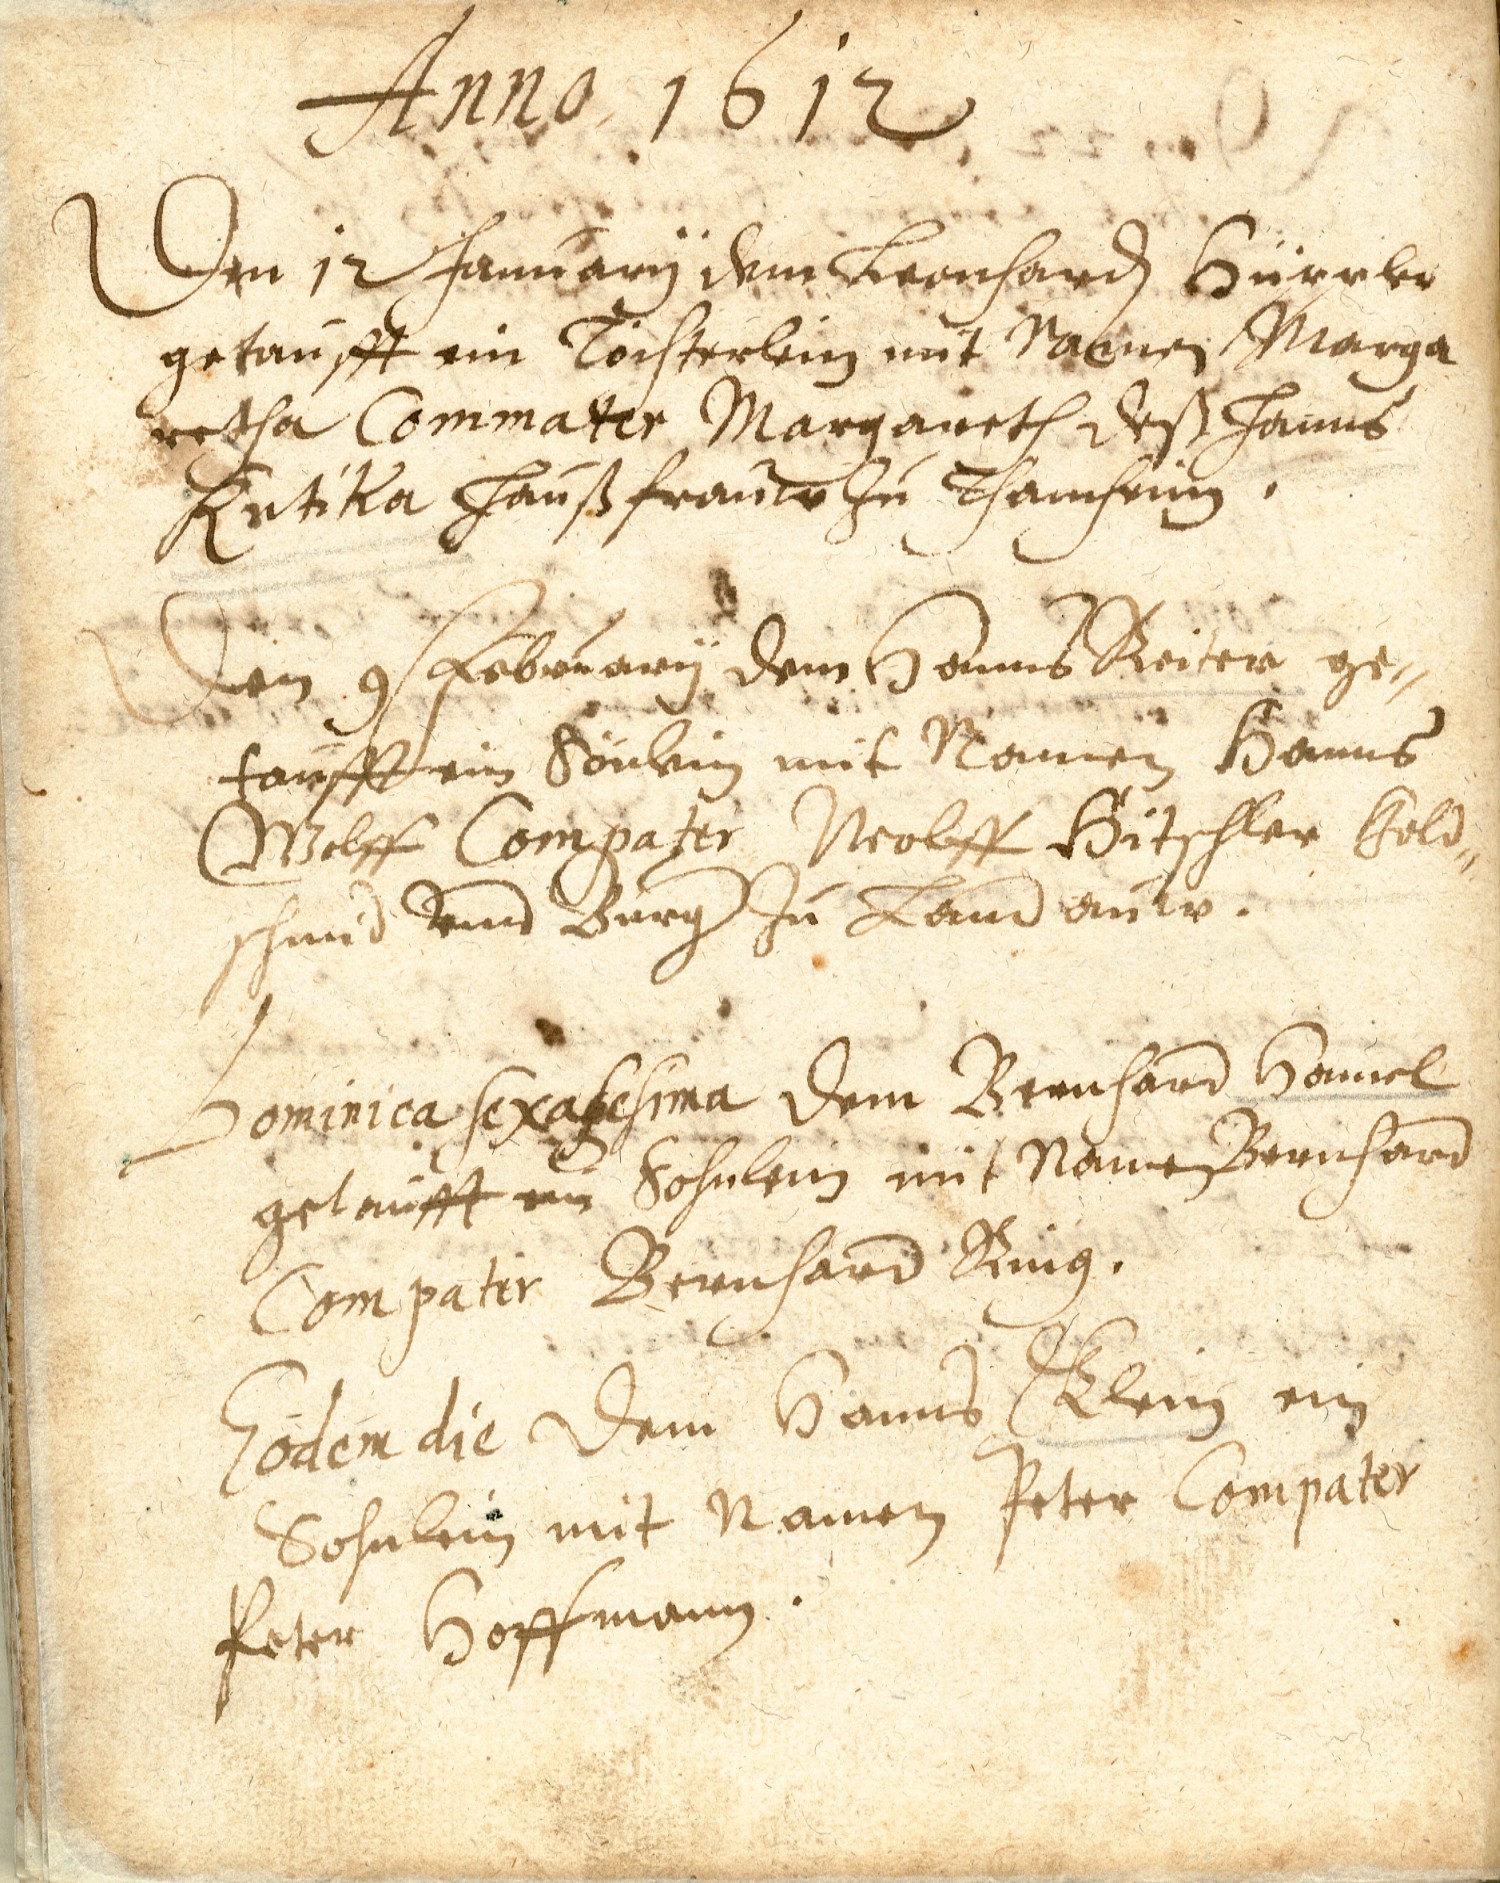 Anno 1612
Den 12 January dem Leonhard Hürrler
getaufft ein Töchterlein mit Namen Marga
retha Commater Margareth deß Hanns
Haußfrauw zu Thamheim.
Den 9 February dem Hanns Reiter ge„
taufft ein Sönlein mit Namen Hanns
Wolff Compater Wolff Hitschler Gold„
schmid vnnd Burg zu Landauw.
Dominica sexagesima dem Bernhard Hamel
getaufft ein Sohnlein mit Namen Bernhard
Compater Bernhard Ring.
Eodem die dem Hanns Klein ein
Sohnlein mit Namen Peter Compater
Peter Hoffmann.